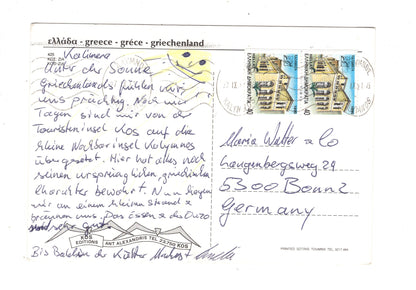 ελλάδα - greece - gréce - griechenland
KOS
Kalimera
Unter der Sonne
Griechenlands fühlen wir
uns prächtig. Nach vier
Tagen sind wir von der
Touristeninsel Kos auf die
kleine Nachbarinsel Kalymnos
übergesetzt. Hier hat alles noch
seinen ursprünglichen, griechischen
Charakter bewahrt. Nun liegen
wir an einem kleinen Strand &
bräunen uns. Das Essen & der Ouzo
sind sehr gut.
KOS
EDITIONS ANT ALEXANDRIS TEL KOS
Bis Bald in der Kälte
Maria Walter & Co
Langenbergsweg 29
5300 Bonn 2
Germany